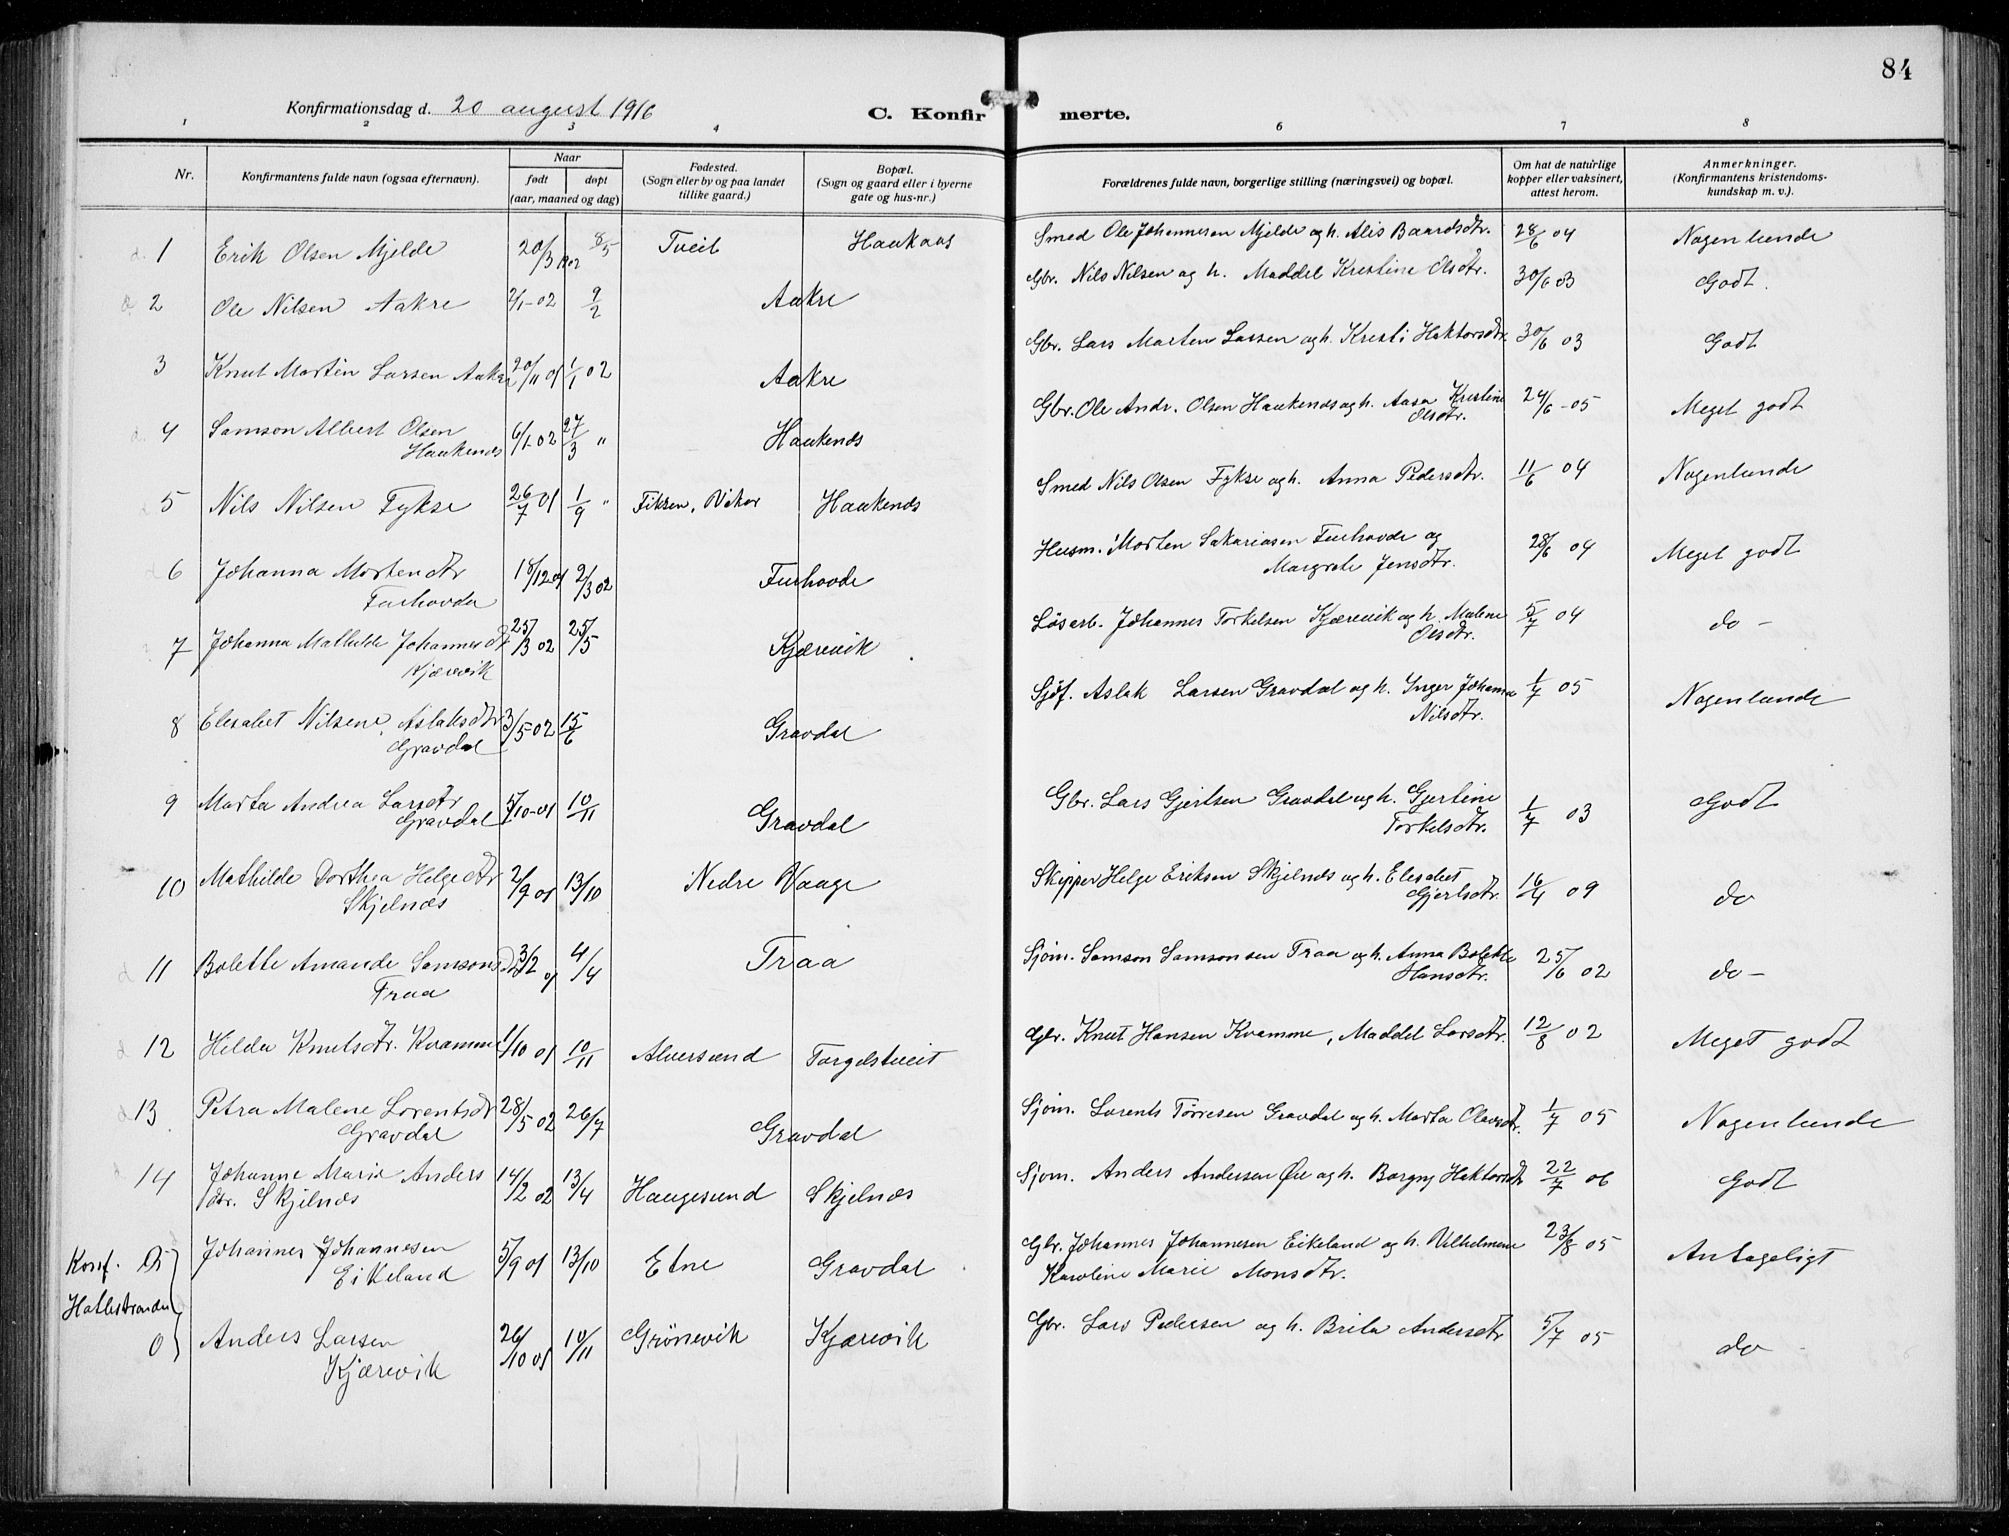 84
Konfirmationsdag d. 20 august 1916
C. Konfirmerte.
1 2 3 4 6 7 8
Nr.
Konfirmantens fulde navn (ogsaa efternavn).
Naar
født
døpt
(aar, maaned og dag)
Fødested.
(Sogn eller by og paa landet
tillike gaard.)
Bopæl.
(Sogn og gaard eller i byerne
gate og hus-nr.)
Forældrenes fulde navn, borgerlige stilling (næringsvei) og bopæl.
Om hat de naturlige
kopper eller vaksinert,
attest herom.
Anmerkninger.
(Konfirmantens kristendoms-
kundskap m. v.).
1 Erik Olsen Mjelde 20/3 1902 8/5 Tveit Haukaas Smed Ole Johannesen Mjelde og h. Alis Baardsdtr. 28/6 04 Nogenlunde
2 Ole Nilsen Aakre 2/1-02 9/2 Aakre Gbr. Nils Nilsen og h. Maddel Kristine Olsdtr. 30/6 03 Godt.
3 Knut Martin Larsen Aakre 20/11 01 1/1 02 Aakre Gbr. Lars Marten Larsen og h. Kristi Haktorsdtr. 30/6 03 Godt
4 Samson Albert Olsen
Haukenæs 6/1-02 27/3 " Haukenæs Gbr. Ole Andr. Olsen Haukenæs og h. Aasa Kristine
Olsdtr. 24/6-05 Meget godt
5 Nils Nilsen Fykse 26/7 01 1/9 " Fiksen, Vikør Haukenæs Smed Nils Olsen Fykse og h. Anna Pedersdtr. 11/6 04 Nogenlunde
6 Johanna Mortensdtr
Furhovde 18/12 01 2/3 02 Furhovde Husm. Morten Sakariasen Furhovde og
Margrete Jensdtr. 28/6 04 Meget godt
7 Johanna Mathilde Johannesdtr
Kjærevik 25/3 02 25/5 Kjærevik Løsarb. Johannes Torkelsen Kjærevik og h. Malene
Olsdtr. 5/7 04 do -
8 Elesabet Nilsine Aslaksdtr
Gravdal 3/5-02 15/6 Gravdal Sjöf. Aslak Larsen Gravdal og h. Inger Johanna
Nilsdtr. 1/7 05 Nogenlunde
9 Marta Andrea Larsdtr
Gravdal 5/10-01 10/11 Gravdal Gbr. Lars Gjertsen Gravdal og h. Gjertine
Torkelsdtr. 1/7 03 Godt
10 Mathilde Dorthea Helgedtr
Skjelnæs 2/9 01 13/10 Nedre Vaage Skipper Helge Eriksen Skjelnæs og h. Elesabet
Gjertsdtr. 16/4 09 do
11 Bolette Amande Samsonsdtr
Traa 3/2 01 4/4 Traa Sjøm. Samson Samsonsen Traa og h. Anna Bolette
Hansdtr. 25/6 02 do -
12 Helda Knutsdtr. Kvamme 1/10 01 10/11 Alversund Torgelstveit Gbr. Knut Hansen Kvamme, Maddel Larsdtr. 12/8 02 Meget godt
13 Petra Malene Lorentsdtr
Gravdal 28/5 02 26/7 Gravdal Sjøm. Lorents Tørresen Gravdal og h. Marta Olavsdtr. 1/7 05 Nogenlunde
14 Johanne Marie Anders
dtr. Skjelnæs 14/2 02 13/4 Haugesund Skjelnæs Sjøm. Anders Andersen Øie og h. Borgny Haktorsdtr 22/7 06 Godt
Konf. Johannes Johannesen
Eikeland 5/9 01 13/10 Etne Gravdal Gbr. Johannes Johannesen Eikeland og h. Vilhelmine
Karoline Marie Monsdtr. 23/8 05 Antageligt
Hatlestranden
0 Anders Larsen
Kjærevik 26/10 01 10/11 Grönevik Kjærevik Gbr. Lars Pedersen og h. Brita Andersdtr 5/7 05 do